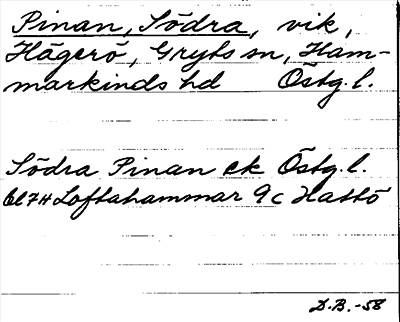 Pinan, Södra, vik,
Hägerö, Gryts sn, Ham-
markinds hd Östg. l.
Södra Pinan ek Östg. l.
bl 74 Loftahammar 9c Hattö
D.B.-58